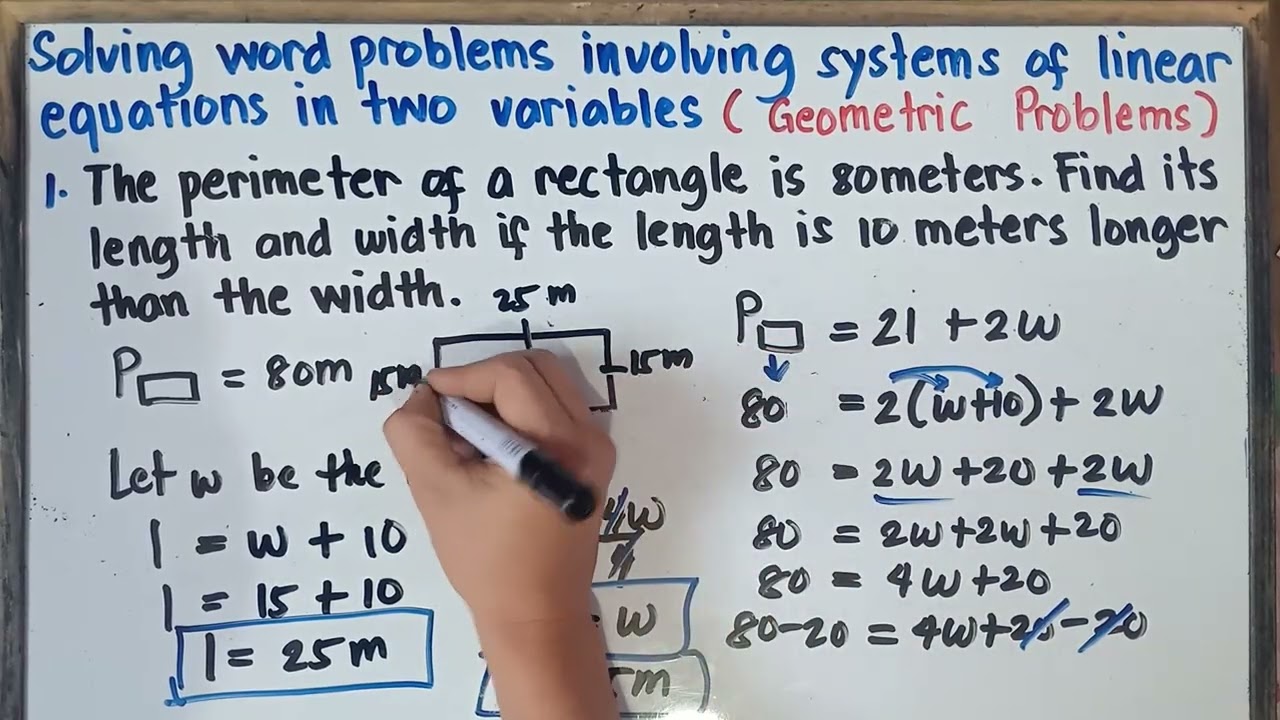 Solving word problems involving systems of linear
equations in two variables (Geometric Problems)
1. The perimeter of a rectangle is 80meters. Find its
length and width if the length is 10 meters longer
than the width.
25 m
15m
15m
P▭ = 80m
Let w be the
l = w + 10
l = 15 + 10
l = 25m
4w
4
w
5m
P▭ = 2l + 2w
80 = 2(w+10) + 2w
80 = 2w + 20 + 2w
80 = 2w+2w+20
80 = 4w+20
80-20 = 4w+20-20